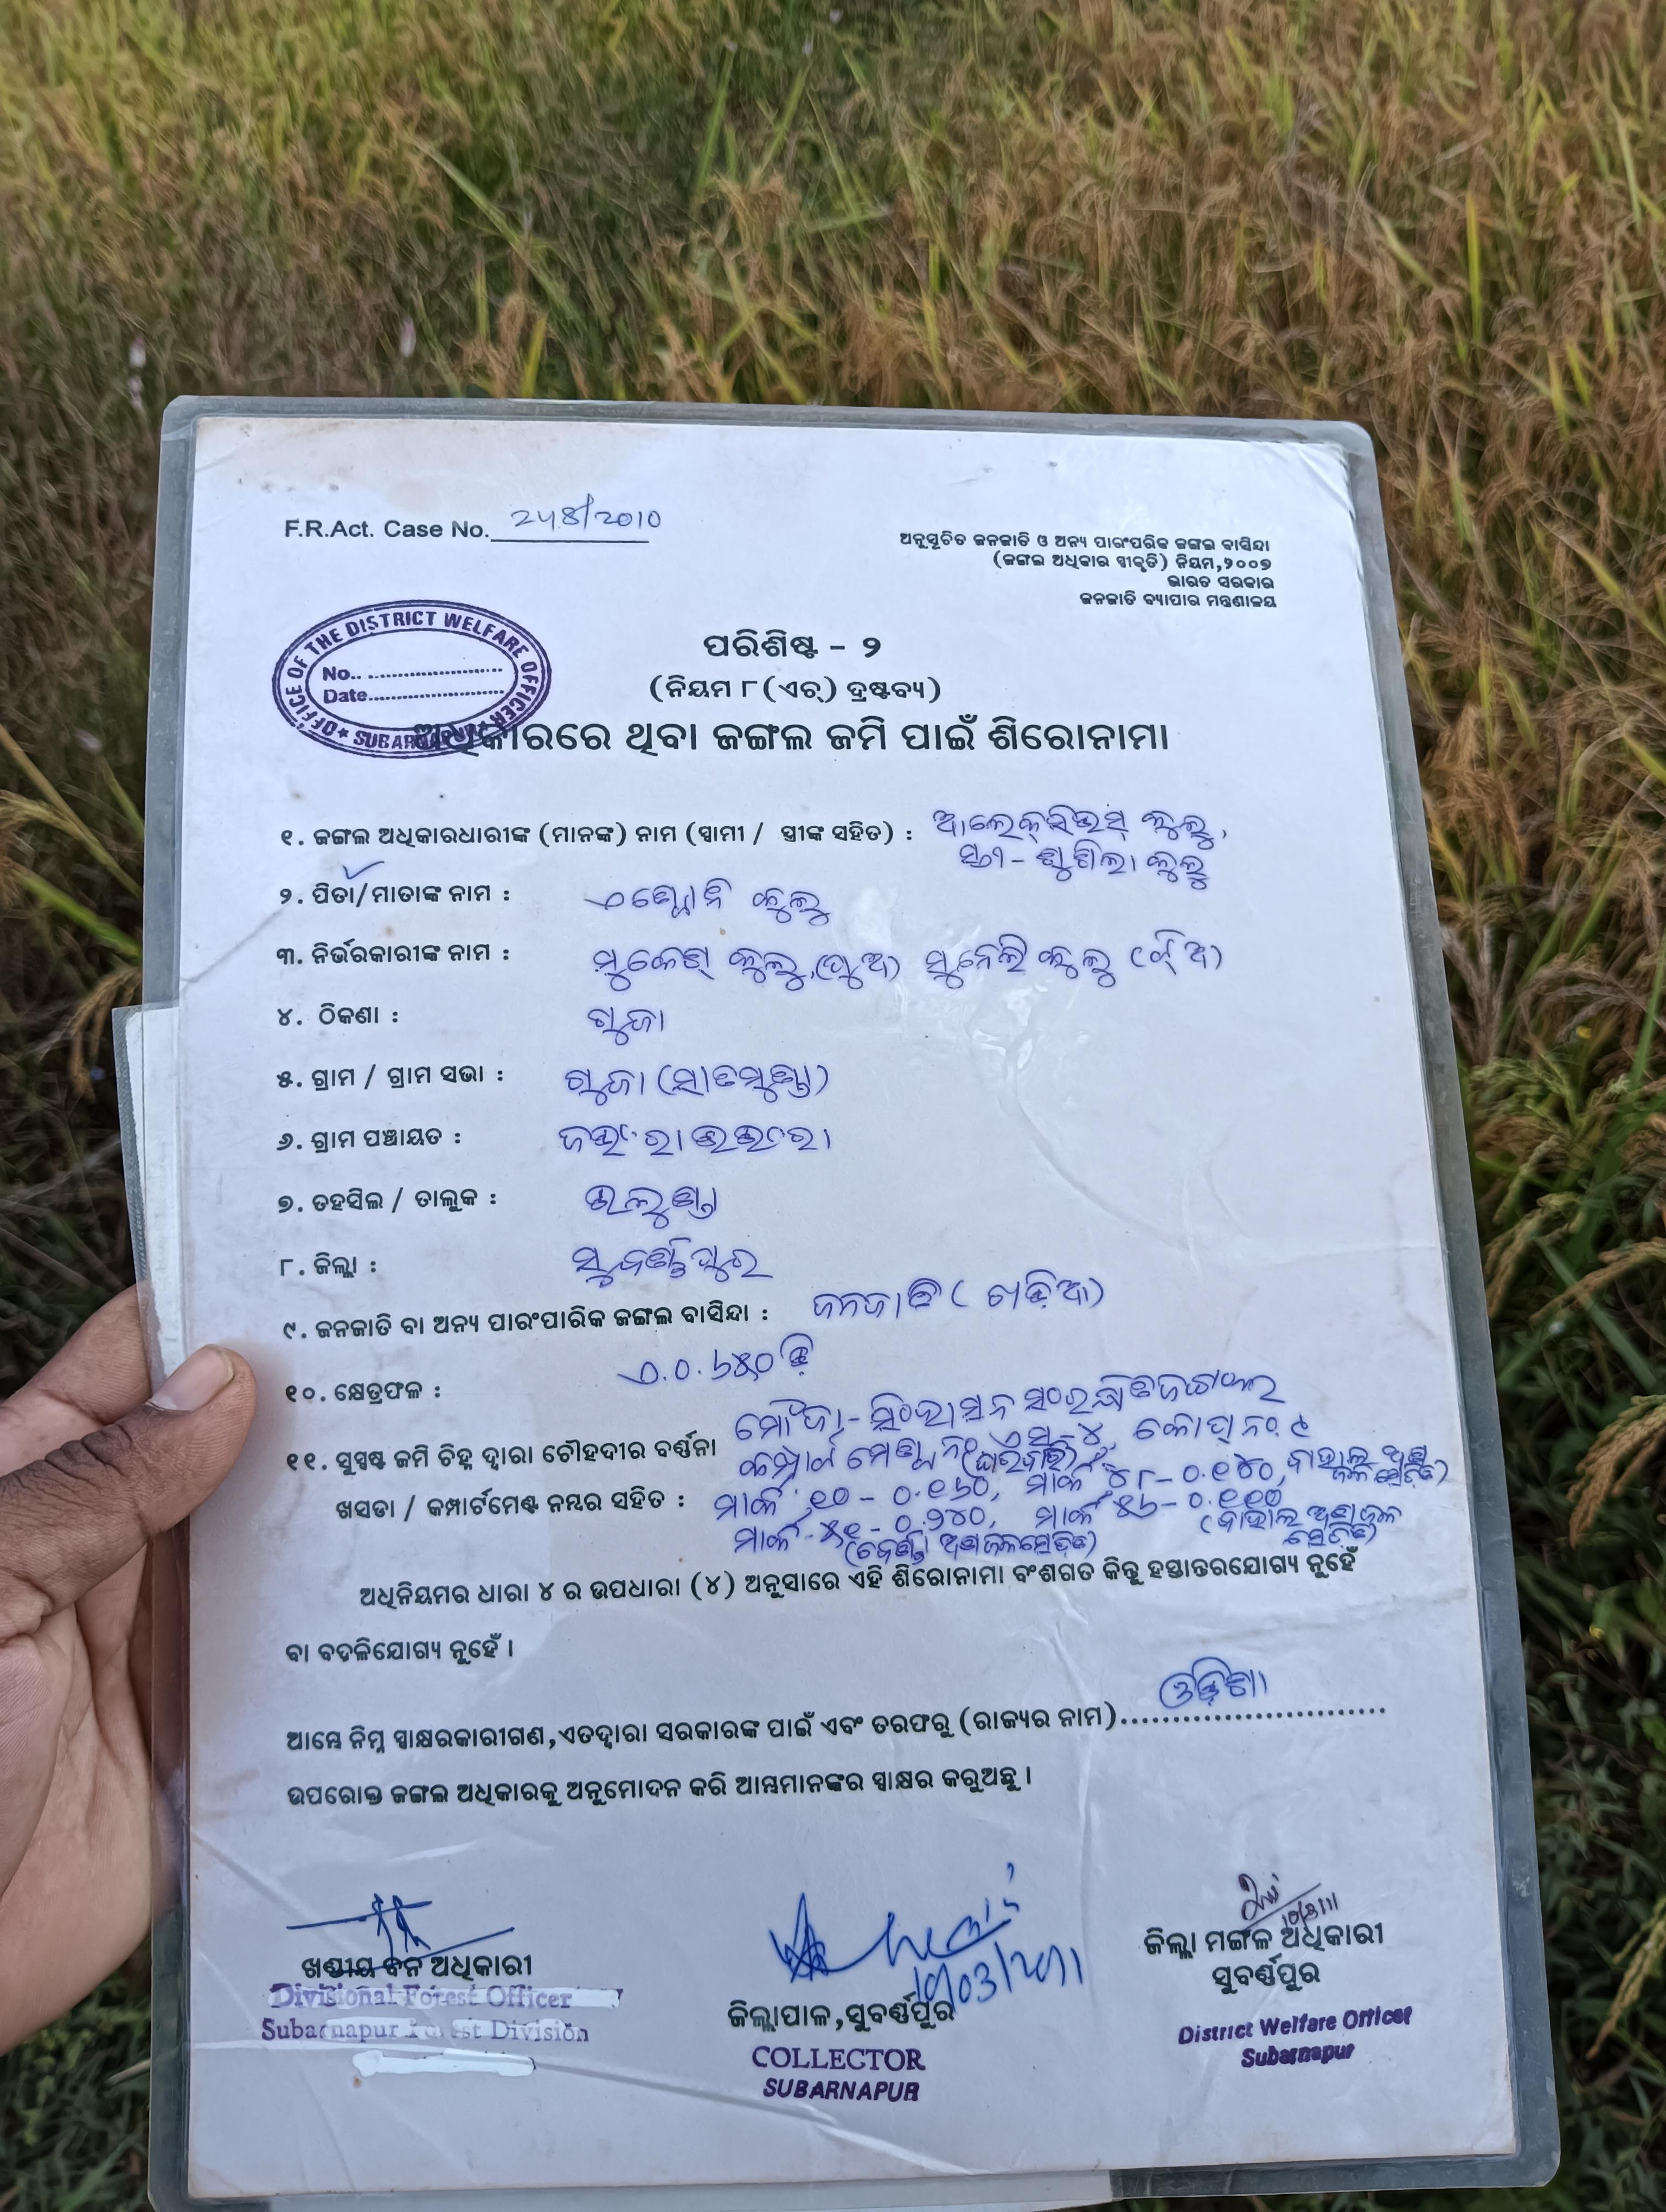 F.R.Act. Case No. 248/2010
ଅନୁସୂଚିତ ଜନଜାତି ଓ ଅନ୍ୟ ପାରଂପରିକ ଜଙ୍ଗଲ ବାସିନ୍ଦା
(ଜଙ୍ଗଲ ଅଧିକାର ସ୍ୱୀକୃତି) ନିୟମ,୨୦୦୭
ଭାରତ ସରକାର
ଜନଜାତି ବ୍ୟାପାର ମନ୍ତ୍ରଣାଳୟ
OFFICE OF THE DISTRICT WELFARE OFFICER
No.
Date
SUBARNAPUR
ପରିଶିଷ୍ଟ - ୨
(ନିୟମ ୮(ଏଚ୍) ଦ୍ରଷ୍ଟବ୍ୟ)
ଅଧିକାରରେ ଥିବା ଜଙ୍ଗଲ ଜମି ପାଇଁ ଶିରୋନାମା
୧. ଜଙ୍ଗଲ ଅଧିକାରଧାରୀଙ୍କ (ମାନଙ୍କ) ନାମ (ସ୍ୱାମୀ / ସ୍ତ୍ରୀଙ୍କ ସହିତ) : ଆଲେକ୍ସିଉସ୍ କୁଲୁ,
ସ୍ତ୍ରୀ - ସୁଶିଲା କୁଲୁ
୨. ପିତା/ମାତାଙ୍କ ନାମ : ଏନ୍ଥୋନି କୁଲୁ
୩. ନିର୍ଭରକାରୀଙ୍କ ନାମ : ମୁକେଶ୍ କୁଲୁ,(ପୁଅ) ସୁନେଲି କୁଲୁ (ଝିଅ)
୪. ଠିକଣା : ଗୁଜା
୫. ଗ୍ରାମ / ଗ୍ରାମ ସଭା : ଗୁଜା (ସାତମୁଣ୍ଡା)
୬. ଗ୍ରାମ ପଞ୍ଚାୟତ :
୭. ତହସିଲ / ତାଲୁକ : ଉଲୁଣ୍ଡା
୮. ଜିଲ୍ଲା : ସୁବର୍ଣ୍ଣପୁର
୯. ଜନଜାତି ବା ଅନ୍ୟ ପାରଂପାରିକ ଜଙ୍ଗଲ ବାସିନ୍ଦା : ଜନଜାତି ( ଖଡ଼ିଆ)
୧୦. କ୍ଷେତ୍ରଫଳ : ଏ.୦.୬୫୦ ଡି
ମୌଜା - ସିଂହାସନ ସଂରକ୍ଷିତ ଜଙ୍ଗଲ
୧୧. ସୁସ୍ପଷ୍ଟ ଜମି ଚିହ୍ନ ଦ୍ୱାରା ଚୌହଦୀର ବର୍ଣ୍ଣନା କମ୍ପାର୍ଟମେଣ୍ଟ ନଂ ଏସ୍-୪, କୋପ୍ ନଂ. ୯
(ଘରବାରି)
ଖସଡା / କମ୍ପାର୍ଟମେଣ୍ଟ ନମ୍ବର ସହିତ : ମାର୍କା ୧୦ - ୦.୧୬୦, ମାର୍କା ୪୮ - ୦.୧୪୦,
ମାର୍କା - ୫୧ - ୦.୨୪୦, ମାର୍କା ୫୬ - ୦.୧୧୦
ଅଧିନିୟମର ଧାରା ୪ ର ଉପଧାରା (୪) ଅନୁସାରେ ଏହି ଶିରୋନାମା ବଂଶଗତ କିନ୍ତୁ ହସ୍ତାନ୍ତରଯୋଗ୍ୟ ନୁହେଁ
ବା ବଦଳିଯୋଗ୍ୟ ନୁହେଁ ।
ଆମ୍ଭେ ନିମ୍ନ ସ୍ୱାକ୍ଷରକାରୀଗଣ,ଏତଦ୍ୱାରା ସରକାରଙ୍କ ପାଇଁ ଏବଂ ତରଫରୁ (ରାଜ୍ୟର ନାମ) ଓଡ଼ିଶା
ଉପରୋକ୍ତ ଜଙ୍ଗଲ ଅଧିକାରକୁ ଅନୁମୋଦନ କରି ଆମ୍ଭମାନଙ୍କର ସ୍ୱାକ୍ଷର କରୁଅଛୁ ।
ଖଣ୍ଡୀୟ ବନ ଅଧିକାରୀ
Divisional Forest Officer
Subarnapur Forest Division
10/03/2011
ଜିଲ୍ଲାପାଳ,ସୁବର୍ଣ୍ଣପୁର
COLLECTOR
SUBARNAPUR
10/3/11
ଜିଲ୍ଲା ମଙ୍ଗଳ ଅଧିକାରୀ
ସୁବର୍ଣ୍ଣପୁର
District Welfare Officer
Subarnapur